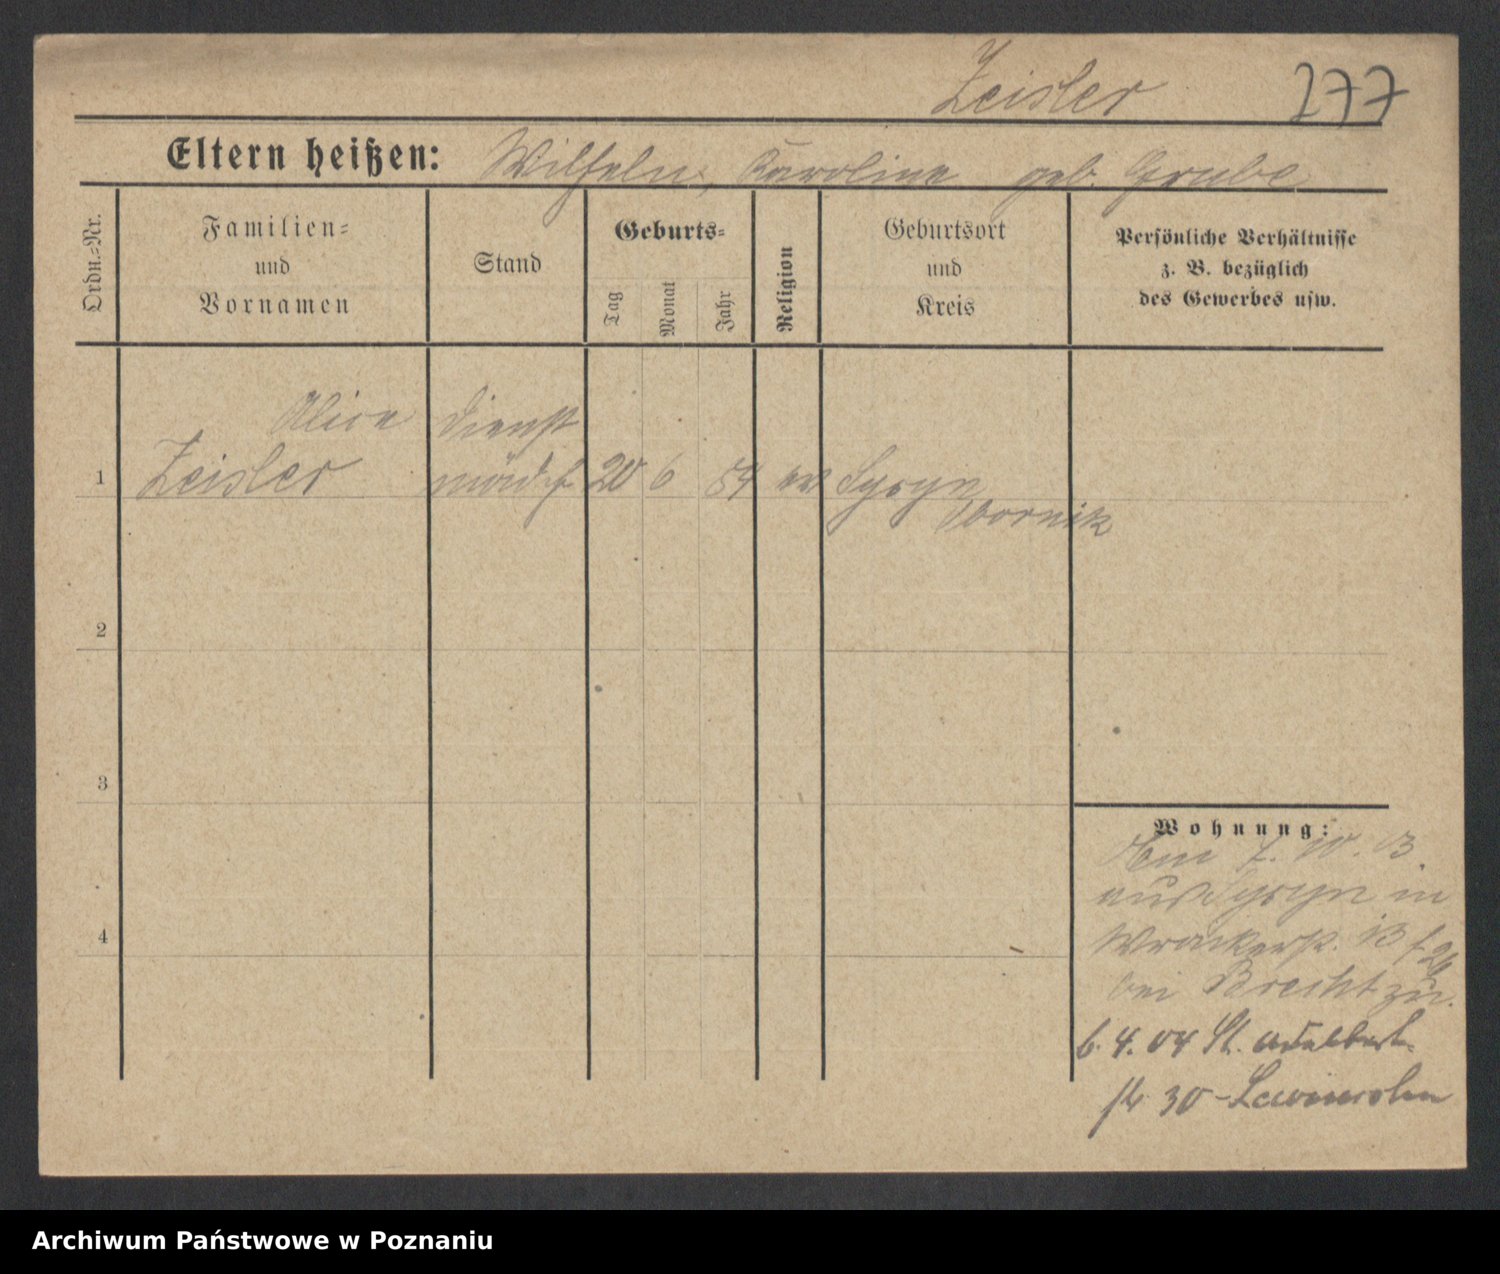 Zeisler 277
Eltern heißen: Wilhelm, Karoline geb. Grube
Ordn.-Nr.
Familien-
und
Vornamen
Stand
Geburts-
Tag
Monat
Jahr
Religion
Geburtsort
und
Kreis
Persönliche Verhältnisse
z. B. bezüglich
des Gewerbes usw.
Dienst
1 Zeisler 20 6 84 ev
Obornik
2
3
4
Wohnung:
7. 10. 03.
aus in
13
bei Brecht zu.
6. 4. 04 St. Adalbert-
str 30 -
Archiwum Państwowe w Poznaniu